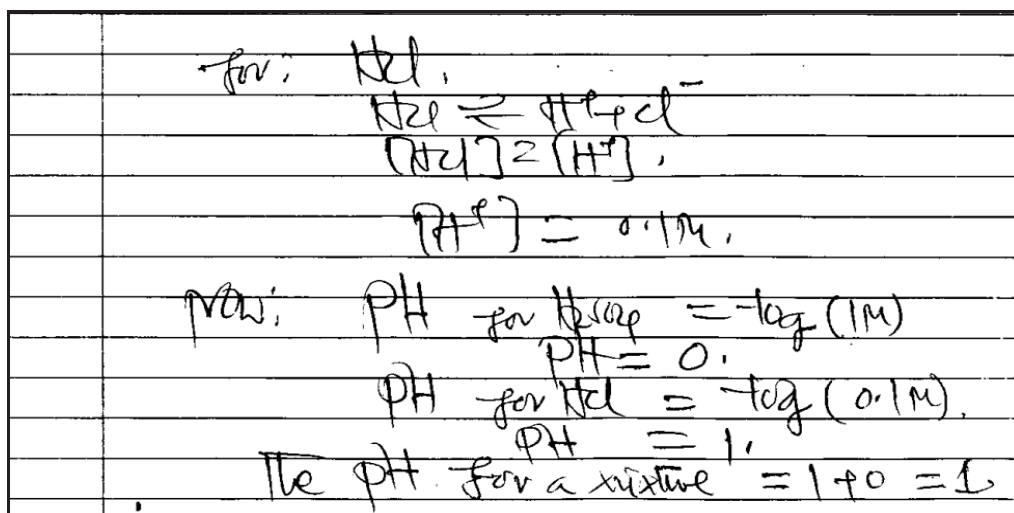 for: HCl.
HCl ⇌ H⁺ + Cl⁻
[HCl] = [H⁺].
[H⁺] = 0.1M.
Now: PH for H₂SO₄ = -log (1M)
PH = 0.
PH for HCl = -log (0.1M).
PH = 1.
The PH for a mixture = 1+0 = 1